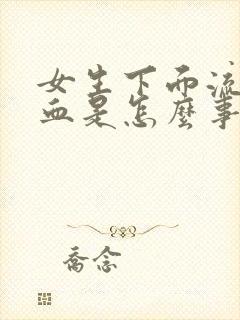 女生下面流
血是怎麼事
喬念